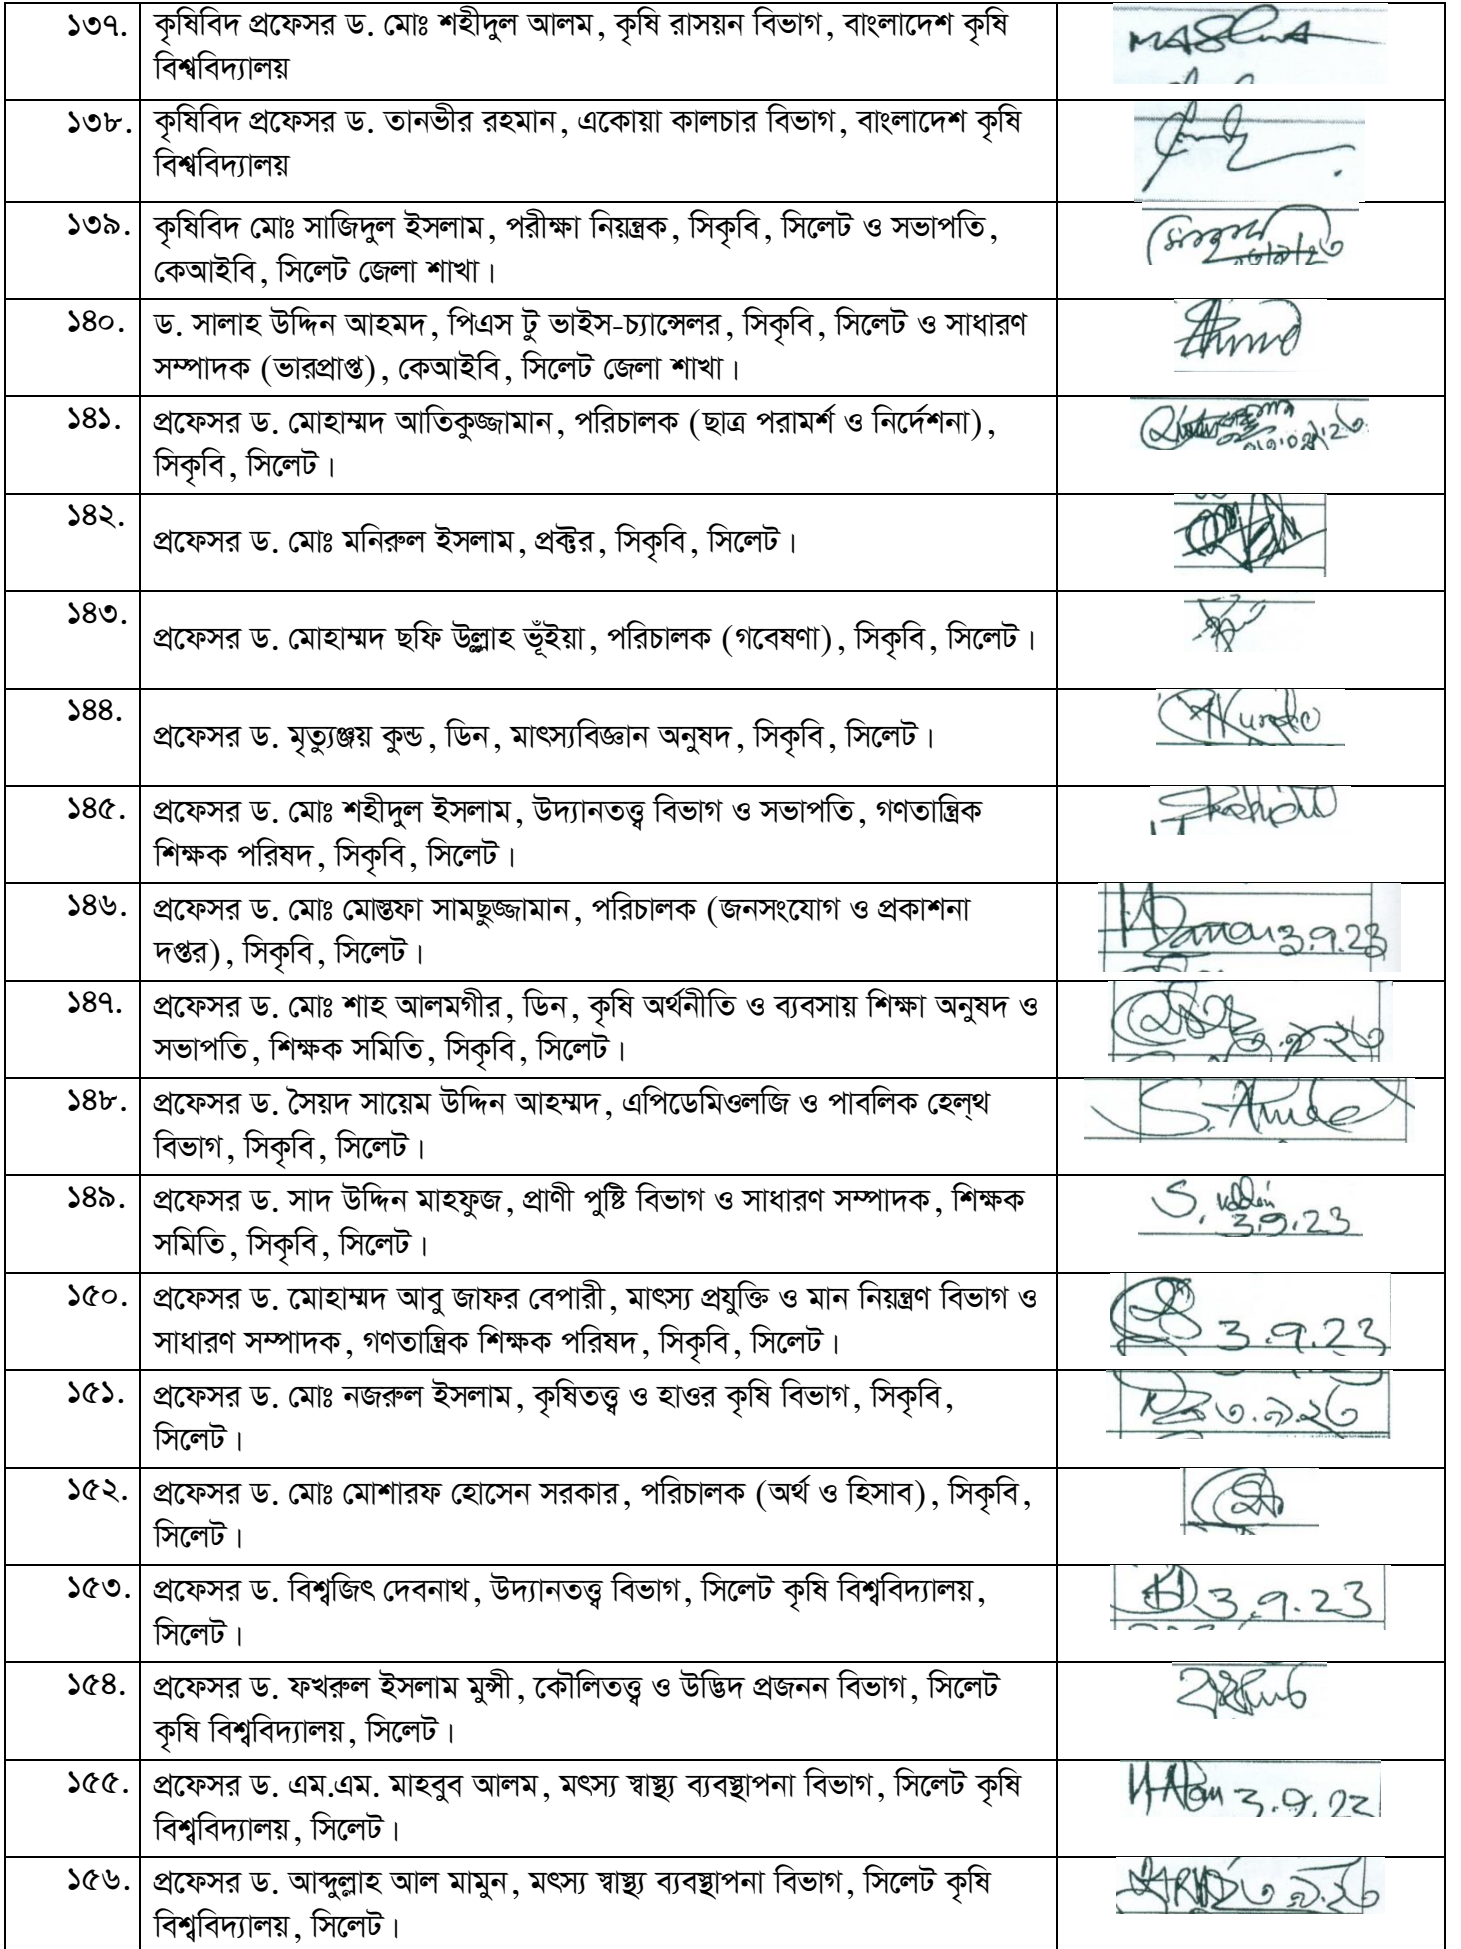 ১৩৭. কৃষিবিদ প্রফেসর ড. মোঃ শহীদুল আলম, কৃষি রাসয়ন বিভাগ, বাংলাদেশ কৃষি
বিশ্ববিদ্যালয়
১৩৮. কৃষিবিদ প্রফেসর ড. তানভীর রহমান, একোয়া কালচার বিভাগ, বাংলাদেশ কৃষি
বিশ্ববিদ্যালয়
১৩৯. কৃষিবিদ মোঃ সাজিদুল ইসলাম, পরীক্ষা নিয়ন্ত্রক, সিকৃবি, সিলেট ও সভাপতি,
কেআইবি, সিলেট জেলা শাখা।
১৪০. ড. সালাহ উদ্দিন আহমদ, পিএস টু ভাইস-চ্যান্সেলর, সিকৃবি, সিলেট ও সাধারণ
সম্পাদক (ভারপ্রাপ্ত), কেআইবি, সিলেট জেলা শাখা।
১৪১. প্রফেসর ড. মোহাম্মদ আতিকুজ্জামান, পরিচালক (ছাত্র পরামর্শ ও নির্দেশনা),
সিকৃবি, সিলেট।
১৪২. প্রফেসর ড. মোঃ মনিরুল ইসলাম, প্রক্টর, সিকৃবি, সিলেট।
১৪৩. প্রফেসর ড. মোহাম্মদ ছফি উল্লাহ ভূঁইয়া, পরিচালক (গবেষণা), সিকৃবি, সিলেট।
১৪৪. প্রফেসর ড. মৃত্যুঞ্জয় কুন্ড, ডিন, মাৎস্যবিজ্ঞান অনুষদ, সিকৃবি, সিলেট।
১৪৫. প্রফেসর ড. মোঃ শহীদুল ইসলাম, উদ্যানতত্ত্ব বিভাগ ও সভাপতি, গণতান্ত্রিক
শিক্ষক পরিষদ, সিকৃবি, সিলেট।
১৪৬. প্রফেসর ড. মোঃ মোস্তফা সামছুজ্জামান, পরিচালক (জনসংযোগ ও প্রকাশনা
দপ্তর), সিকৃবি, সিলেট। 3.9.23
১৪৭. প্রফেসর ড. মোঃ শাহ আলমগীর, ডিন, কৃষি অর্থনীতি ও ব্যবসায় শিক্ষা অনুষদ ও
সভাপতি, শিক্ষক সমিতি, সিকৃবি, সিলেট। ৩.৯.২৩
১৪৮. প্রফেসর ড. সৈয়দ সায়েম উদ্দিন আহম্মদ, এপিডেমিওলজি ও পাবলিক হেল্‌থ
বিভাগ, সিকৃবি, সিলেট।
১৪৯. প্রফেসর ড. সাদ উদ্দিন মাহফুজ, প্রাণী পুষ্টি বিভাগ ও সাধারণ সম্পাদক, শিক্ষক
সমিতি, সিকৃবি, সিলেট। S. Uddin 3.9.23
১৫০. প্রফেসর ড. মোহাম্মদ আবু জাফর বেপারী, মাৎস্য প্রযুক্তি ও মান নিয়ন্ত্রণ বিভাগ ও
সাধারণ সম্পাদক, গণতান্ত্রিক শিক্ষক পরিষদ, সিকৃবি, সিলেট। 3.9.23
১৫১. প্রফেসর ড. মোঃ নজরুল ইসলাম, কৃষিতত্ত্ব ও হাওর কৃষি বিভাগ, সিকৃবি,
সিলেট। ৩.৯.২৩
১৫২. প্রফেসর ড. মোঃ মোশারফ হোসেন সরকার, পরিচালক (অর্থ ও হিসাব), সিকৃবি,
সিলেট।
১৫৩. প্রফেসর ড. বিশ্বজিৎ দেবনাথ, উদ্যানতত্ত্ব বিভাগ, সিলেট কৃষি বিশ্ববিদ্যালয়,
সিলেট। 3.9.23
১৫৪. প্রফেসর ড. ফখরুল ইসলাম মুন্সী, কৌলিতত্ত্ব ও উদ্ভিদ প্রজনন বিভাগ, সিলেট
কৃষি বিশ্ববিদ্যালয়, সিলেট।
১৫৫. প্রফেসর ড. এম.এম. মাহবুব আলম, মৎস্য স্বাস্থ্য ব্যবস্থাপনা বিভাগ, সিলেট কৃষি
বিশ্ববিদ্যালয়, সিলেট। 3.9.23
১৫৬. প্রফেসর ড. আব্দুল্লাহ আল মামুন, মৎস্য স্বাস্থ্য ব্যবস্থাপনা বিভাগ, সিলেট কৃষি
বিশ্ববিদ্যালয়, সিলেট। ৩.৯.২৩